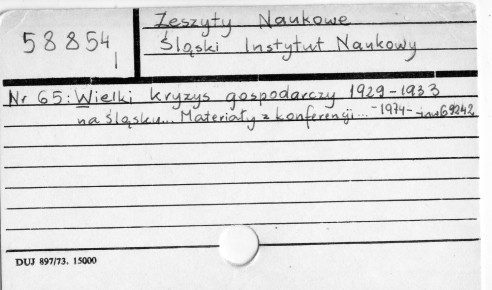 58854
I
Zeszyty Naukowe
Śląski Instytut Naukowy
Nr 65: Wielki kryzys gospodarczy 1929-1933
na Śląsku... Materiały z konferencji... -1974- inw 69242
DUJ 897/73. 15000